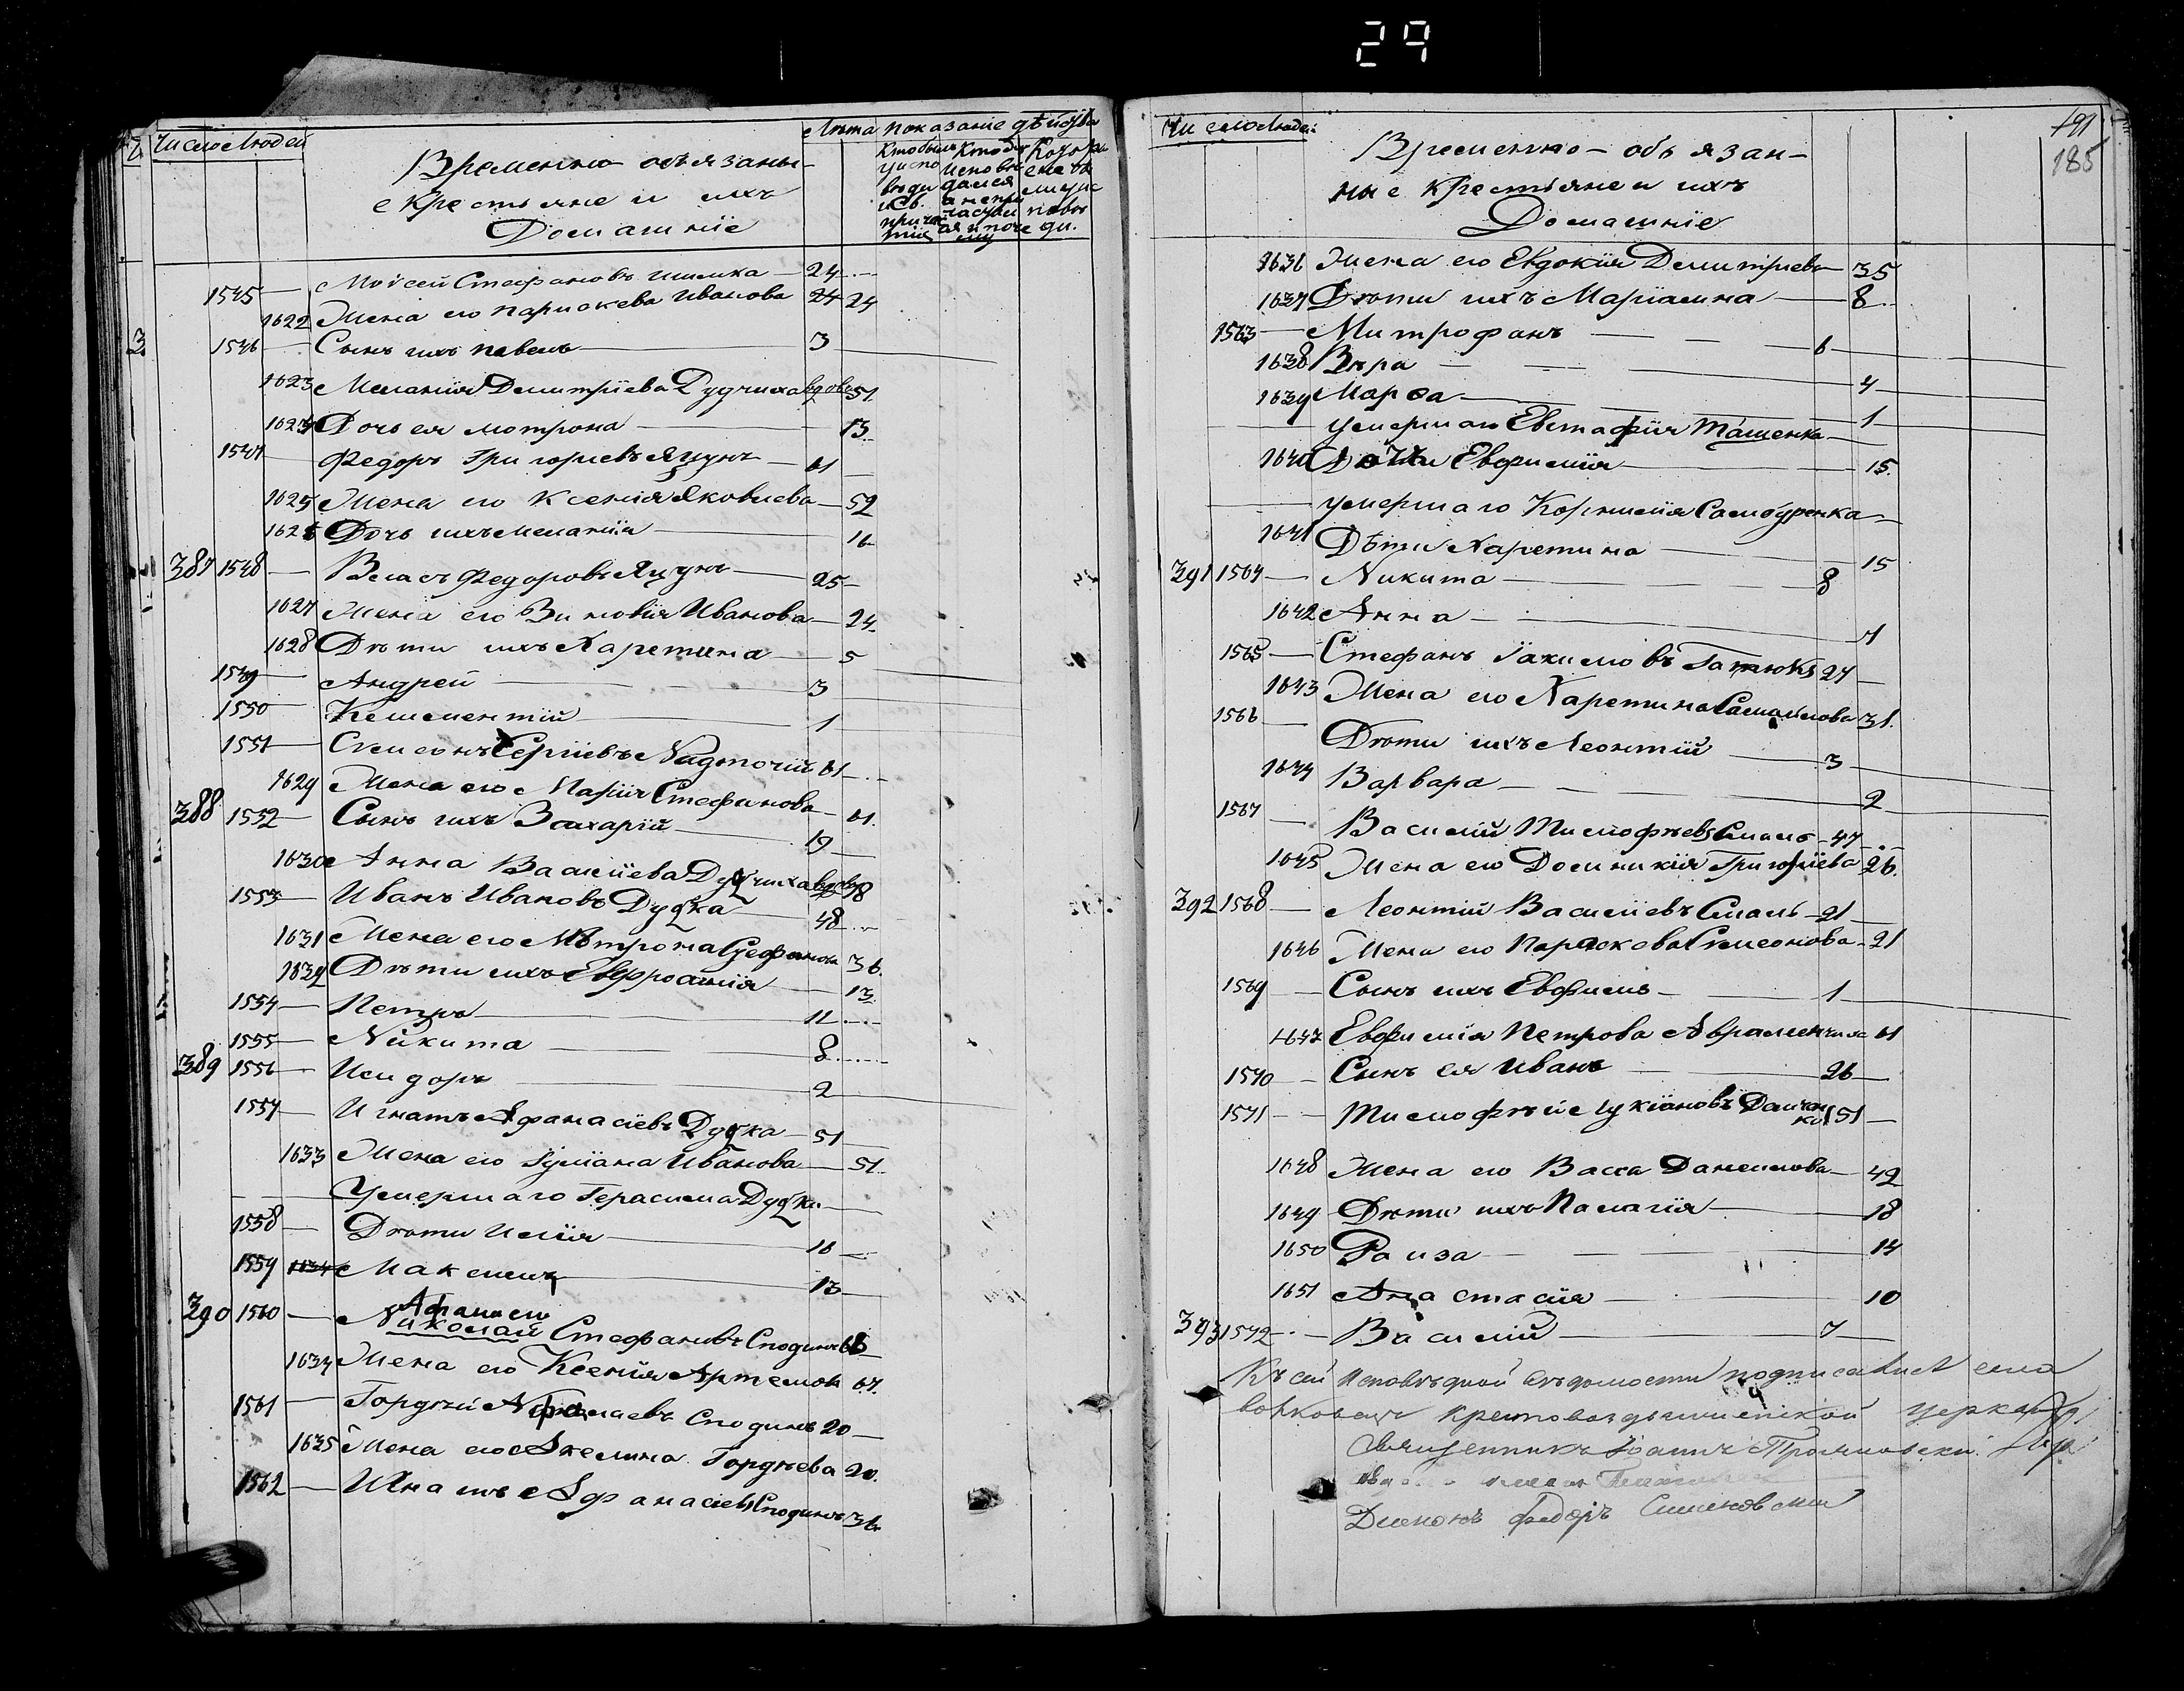 29
Число Людей
Лѣта
показанiе дѣйства
Временно обязаны-
е крестьяне и ихъ
Домашнiе
1545 — Моисей Стефановъ Шишка — 24
1622 Жена его Параскева Иванова 24 24
3 1546 — Сынъ ихъ Павелъ — 3
1623 Меланiя Димитрiева Дудчиха вдова 51
1624 Дочь ея Мотрона — 13
1547 Федоръ Григорiевъ Яцунъ — 61
1625 Жена его Ксенiя Яковлева — 59
1626 Дочь ихъ Меланiя — 16
387 1548 — Власъ Федоровъ Яцунъ — 25
1627 Жена его Зиновiя Иванова — 24
1628 Дѣти ихъ Харетина — 5
1549 Андрей — 3
1550 Климентiй — 1
1551 — Симеонъ Сергiевъ Надточiй 61
1629 Жена его Марiя Стефанова — 61
388 1552 — Сынъ ихъ Захарiй — 19
1630 Анна Василiева Дудчиха вдова 78
1553 — Иванъ Ивановъ Дудка — 48
1631 Жена его Мотрона Стефанова 36
1632 Дѣти ихъ Евфросинiя — 13
1554 — Петръ — 11
1555 — Никита — 8
389 1556 — Исидоръ — 2
1557 — Игнатъ Афанасiевъ Дудка — 51
1633 Жена его Iулiана Иванова — 51
Умершаго Герасима Дудки
1558 — Дѣти Илiя — 16
1559 1634 Максимъ — 13
390 1560 — Афанасiй
Николай Стефановъ Сподинъ 68
1634 Жена его Ксенiя Артемова 67
1561 — Гордѣй Афанасiевъ Сподинъ 20
1635 Жена его Акелина Гордѣева 20
1562 — Игнатъ Афанасiевъ Сподинъ 36
Число Людей
191
185
Временно-обязан-
ные крестьяне и ихъ
Домашнiе
1636 Жена его Евдокiя Димитрiева — 35
1637 Дѣти ихъ Марiамна — 8
1563 — Митрофанъ — 6
1638 Вѣра — 4
1639 Марѳа — 1
умершаго Евстафiя Ташенка
1640 Дочки Евфимiя — 15
умершаго Корнилiя Самодуренка
1641 Дѣти Харетина — 15
391 1564 — Никита — 8
1642 Анна — 7
1565 — Стефанъ Iакимовъ Гатюкъ 27
1643 Жена его Харетина Самойлова 31
1566 — Дѣти ихъ Леонтiй — 3
1644 Варвара — 2
1567 — Василiй Тимофѣевъ Смаль — 47
1645 Жена его Доминикiя Григорiева 26
392 1568 — Леонтiй Василiевъ Смаль — 21
1646 Жена его Параскева Симеонова — 21
1569 — Сынъ ихъ Евфимъ — 1
1647 Евфимiя Петрова Авраменчиха 61
1570 — Сынъ ея Иванъ — 26
1571 — Тимофѣй Лукiановъ 51
1648 Жена его Васса Данiилова — 42
1649 Дѣти ихъ Палагiя — 18
1650 Раиза — 14
1651 Анастасiя — 10
393 1572 — Василiй — 7
Къ сей исповѣдной вѣдомости подписались села
Волковецъ крестовоздвиженской церкви
Священникъ Iоаннъ
Дiаконъ Федоръ